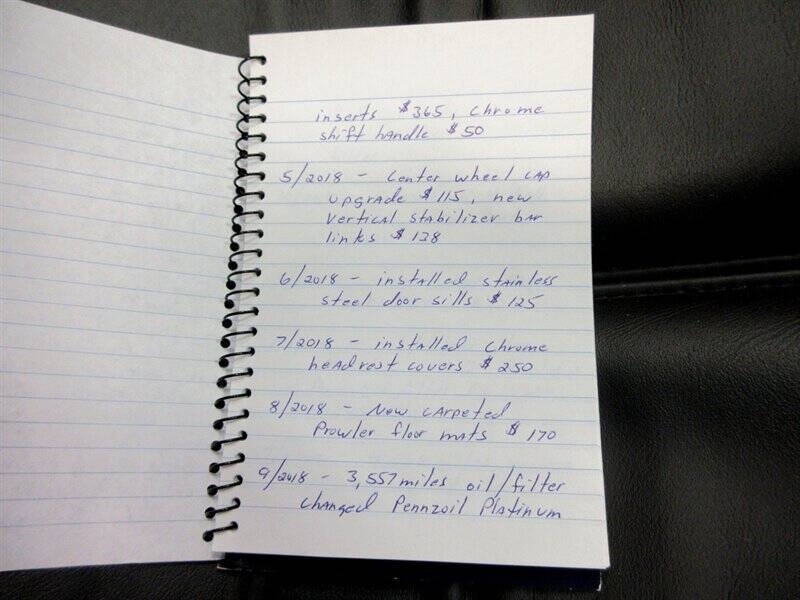 inserts $365, Chrome
shift handle $50
5/2018 - Center wheel cap
upgrade $115, new
vertical stabilizer bar
links $138
6/2018 - installed stainless
steel door sills $125
7/2018 - installed Chrome
headrest covers $250
8/2018 - New carpeted
Prowler floor mats $170
9/2018 - 3,557 miles oil/filter
changed Pennzoil Platinum